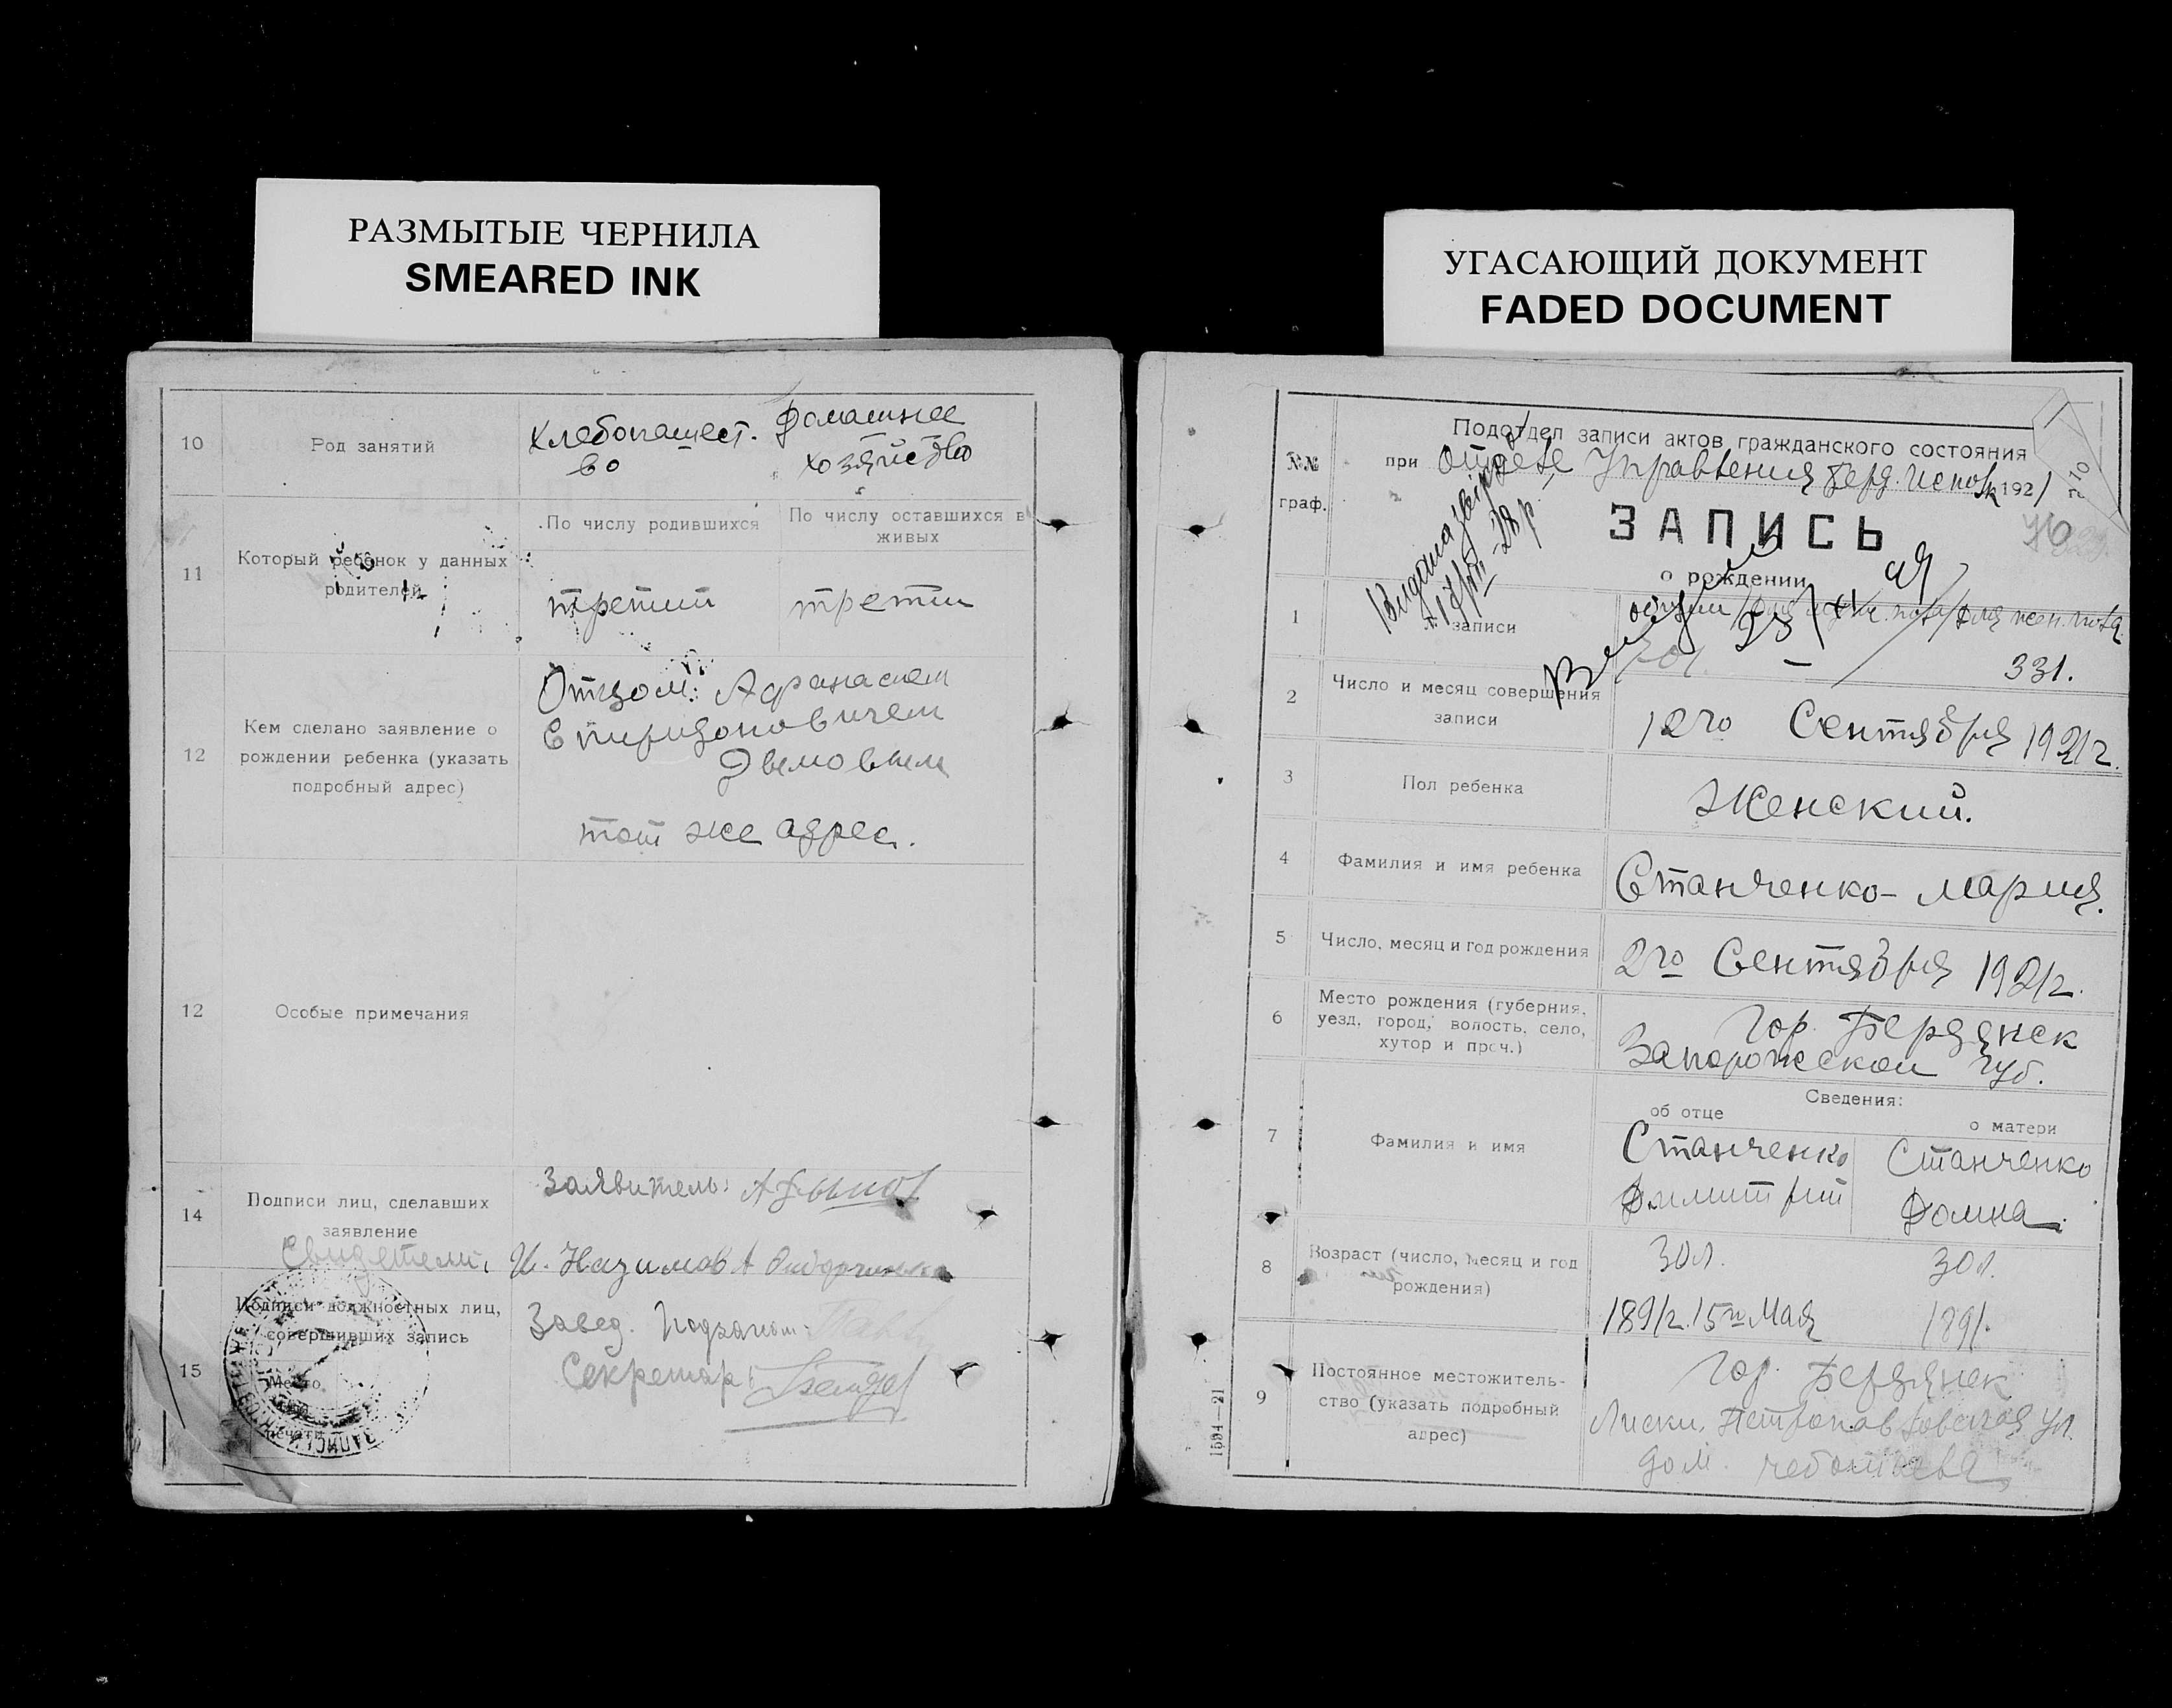 РАЗМЫТЫЕ ЧЕРНИЛА
SMEARED INK
10
Род занятий
Хлебопашест-
во
Домашнее
хозяйство
11
Который ребенок у данных
родителей
По числу родившихся
По числу оставшихся в
живых
третий
третий
12
Кем сделано заявление о
рождении ребенка (указать
подробный адрес)
Отцом: Афанасием
Спиридоновичем
тот же адрес.
12
Особые примечания
14
Подписи лиц, сделавших
заявление
Заявитель:
Свидетели,
И. Назимов А
15
Подписи должностных лиц,
совершивших запись
Место
печати
Завед.
Секретарь
УГАСАЮЩИЙ ДОКУМЕНТ
FADED DOCUMENT
№№
граф.
Подотдел записи актов гражданского состояния
при Отделе Управления Берд. Исполк 1921
ЗАПИСЬ
о рождении
1
записи
331.
2
Число и месяц совершения
записи
12го Сентября 1921г.
3
Пол ребенка
Женский.
4
Фамилия и имя ребенка
Станченко- Мария.
5
Число, месяц и год рождения
2го Сентября 1921г.
6
Место рождения (губерния,
уезд, город, волость, село,
хутор и проч.)
Гор. Бердянск
Запорожской Губ.
7
Фамилия и имя
Сведения:
об отце
о матери
Станченко
Димитрий
Станченко
Домна.
8
Возраст (число, месяц и год
рождения)
30л.
30л.
1891г. 15го Мая
1891.
9
Постоянное местожитель-
ство (указать подробный
адрес)
Гор. Бердянск
Лиски, Петропавловская ул.
дом.
1594—21